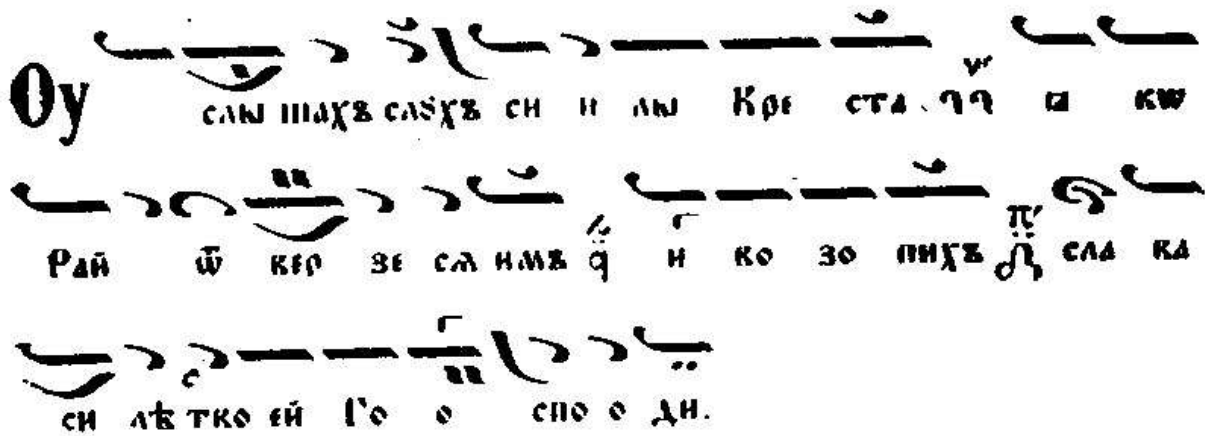 Оу слы шахъ слꙋхъ си и лы Кре ста ꙗ кѡ
Рай ѿ вер зе сѧ имъ и во зо пихъ сла ва
си лѣ тво ей Го о спо о ди.